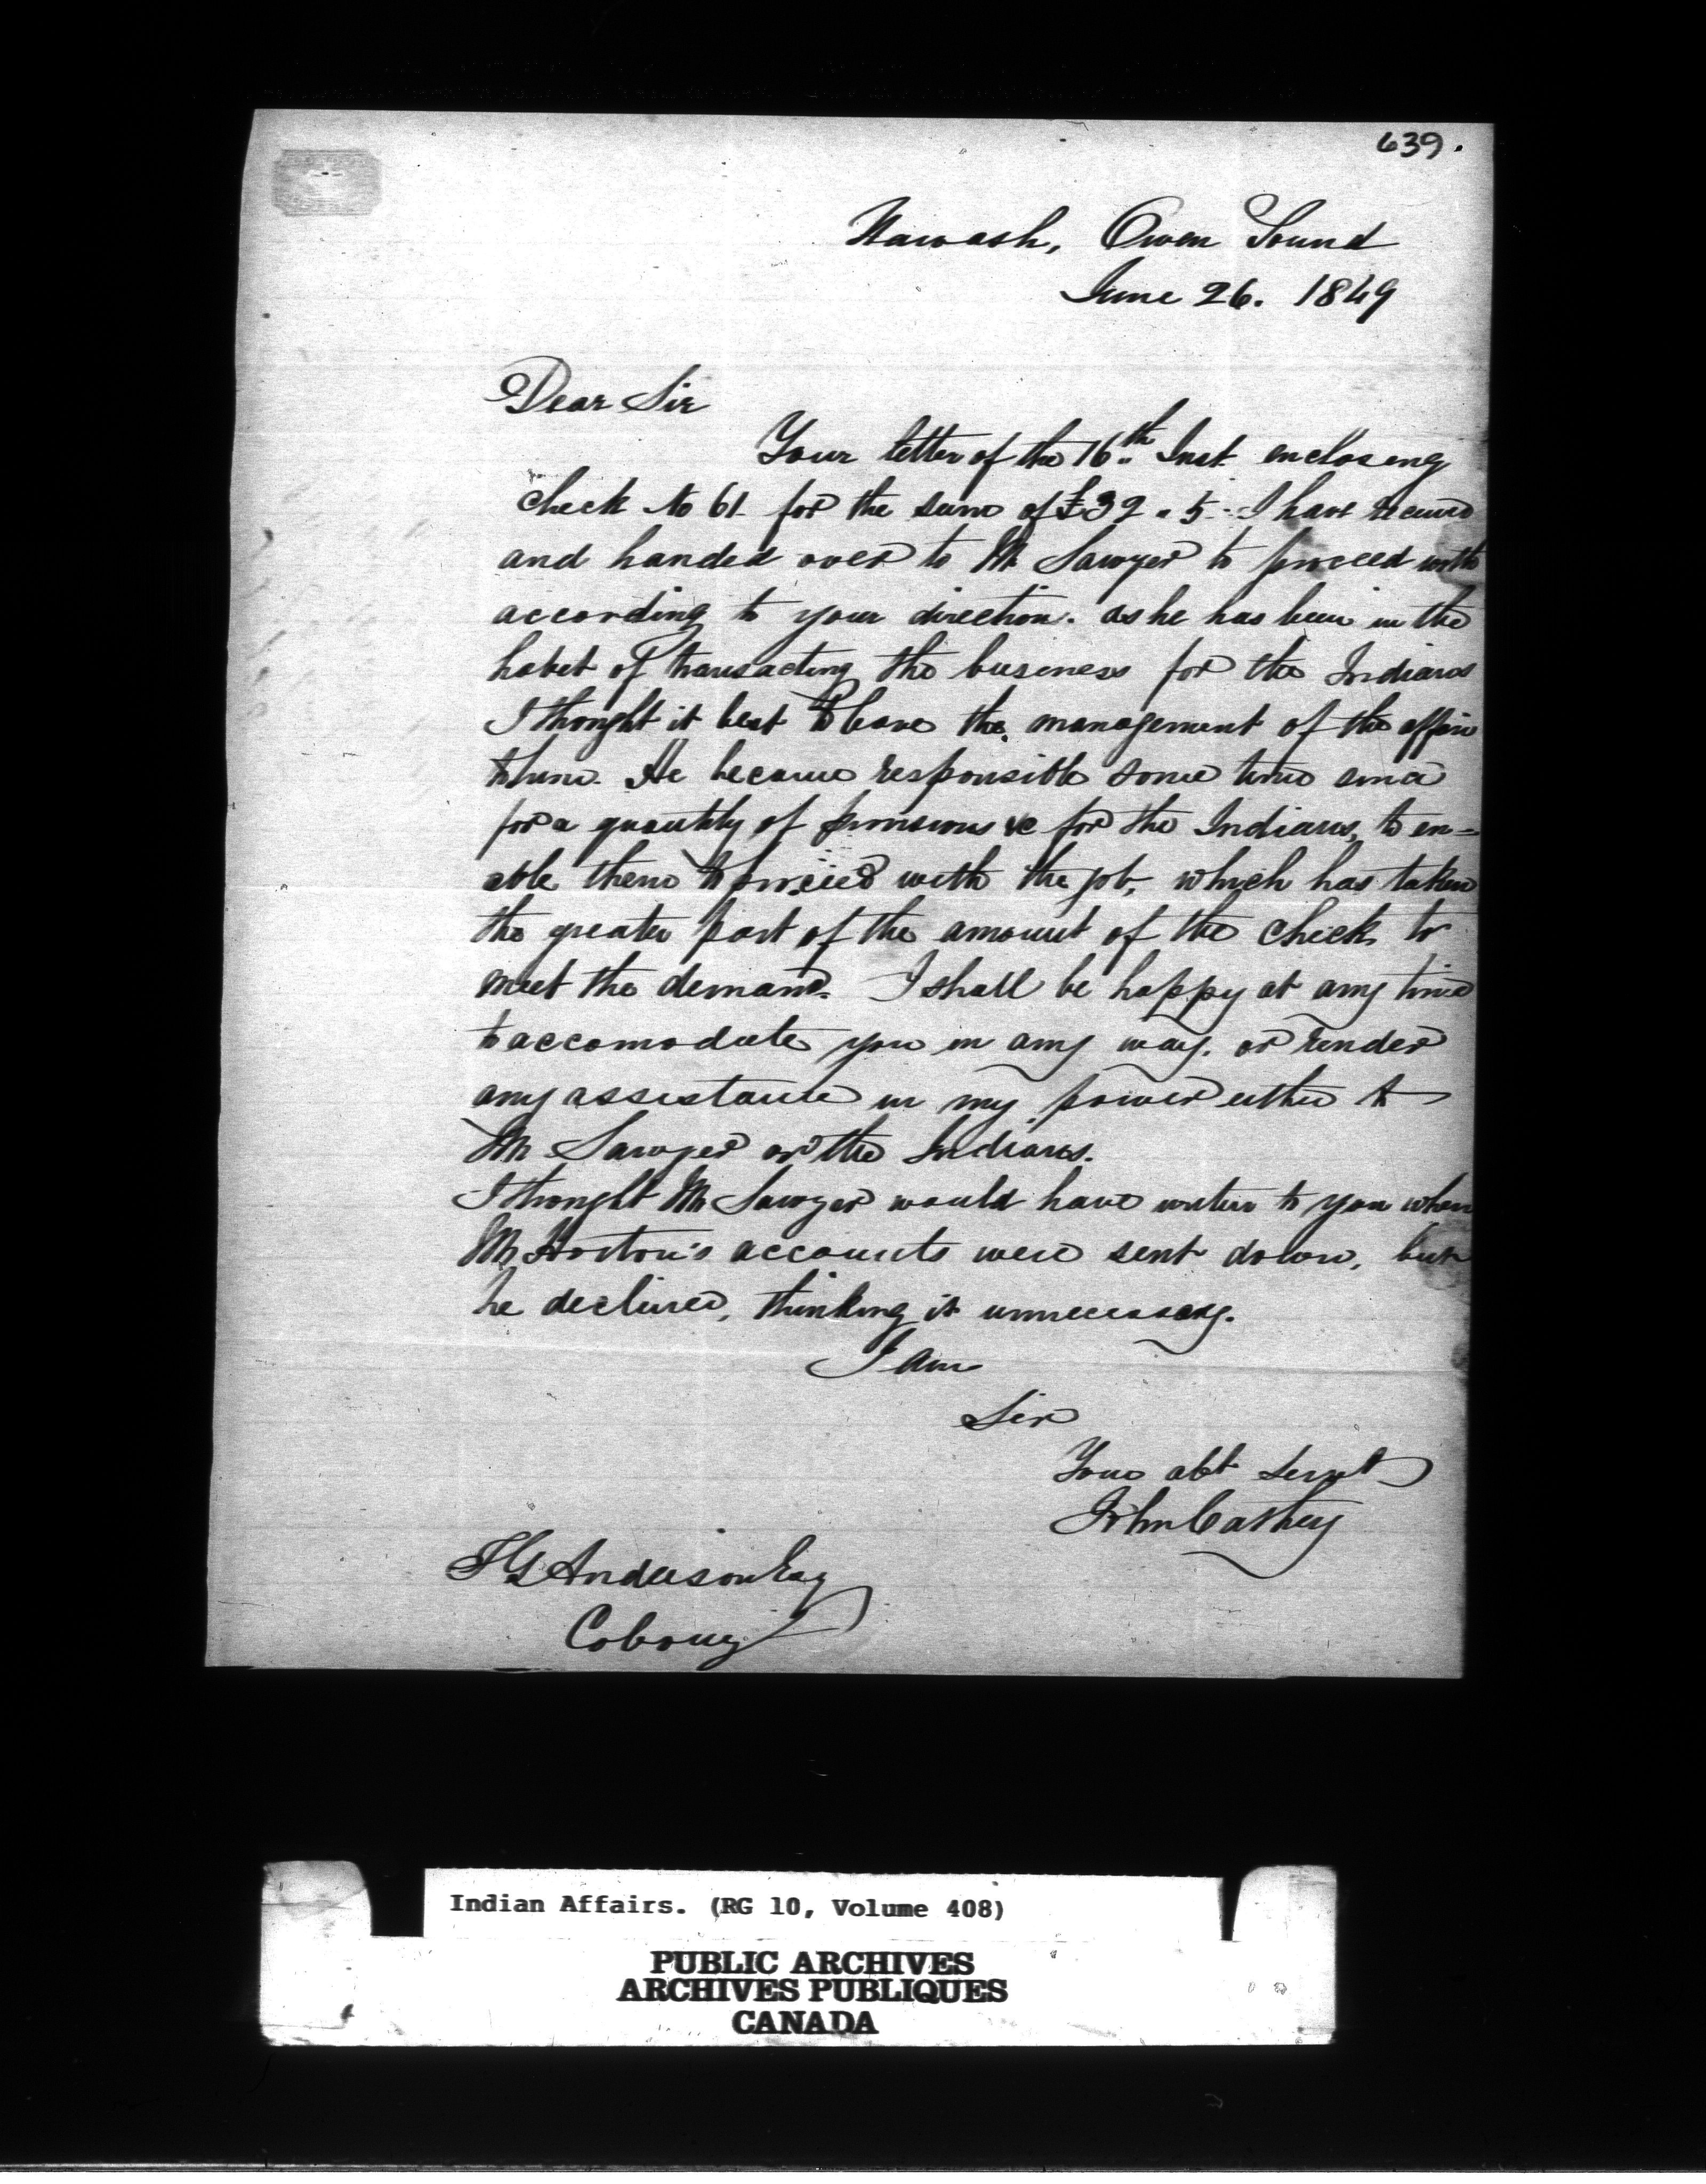 639.
Nawash, Owen Sound
June 26. 1849
Dear Sir
Your letter of the 16th Inst enclosing
check No 61 for the sum of £32 " 5 - I have received
and handed over to Mr Sawyer to proceed with
according to your direction. as he has been in the
habit of transacting the business for the Indians
I thought it best to leave the management of the affair
to him. He became responsible some time since
for a quantity of provisions &c for the Indians, to en-
able them to proceed with the job, which has taken
the greater part of the amount of the check to
meet the demand. I shall be happy at any time
to accomodate you in any way. or render
any assistance in my power either to
Mr Sawyer or the Indians.
I thought Mr Sawyer would have writen to you when
Mr Horton's accounts were sent down, but
he declined, thinking it unnecessary.
I am
Sir
Your obt Servt
John Caskey
T G Anderson Esq
Cobourg
Indian Affairs. (RG 10, Volume 408)
PUBLIC ARCHIVES
ARCHIVES PUBLIQUES
CANADA